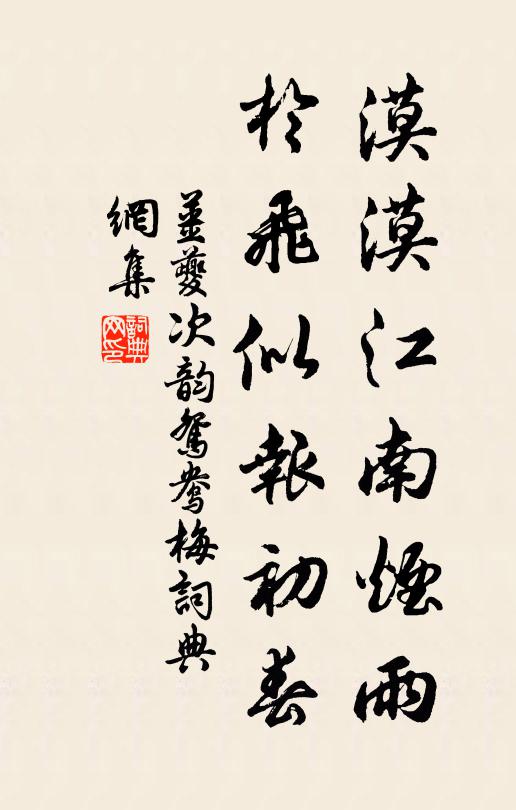 漠漠江南煙雨
於飛似報初春
姜夔次韵鴛鴦梅詞典
網集
詞典
网印